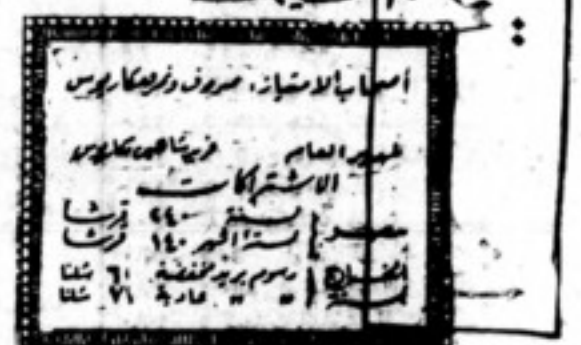 أصحاب الامتياز: صروف ونمر ومكاريوس
المدير العام
الاشتراكات
مصر
لسنة ٢٤٠ قرشا
لستة اشهر ١٤٠ قرشا
الخارج
رسوم بريد مخفضة ٦١ شلنا
" " عادية ٧٦ شلنا